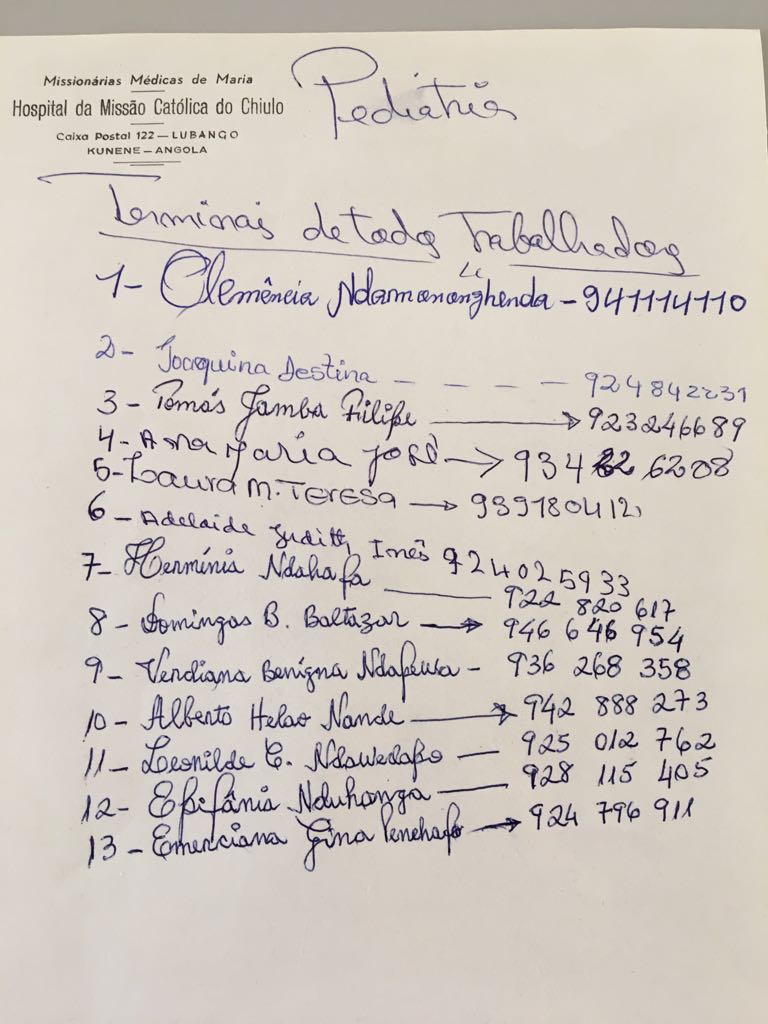 Missionárias Médicas de Maria
Hospital da Missão Católica do Chiulo
Caixa Postal 122 — LUBANGO
KUNENE — ANGOLA
Pediatria
Terminais de todos Trabalhadores
1- Clemência Ndamononghenda - 941114110
2- Joaquina Destina - - - - 924842231
3 - Tomás Jamba Filipe → 923246689
4 - Ana Maria José → 934 6208
5- Laura M. TERESA → 939180412
6 - Adelaide Judith Inês 924025933
7 - Hermínia Ndahafa — 922 820 617
8 - Domingas B. Baltazar → 946 646 954
9 - Verdiana Benigna - 936 268 358
10 - Alberto Helao Nande → 942 888 273
11 - Leonilde C. — 925 012 762
12 - Epifânia Nduhonga — 928 115 405
13 - Emerciana Gina Penehafo → 924 796 911